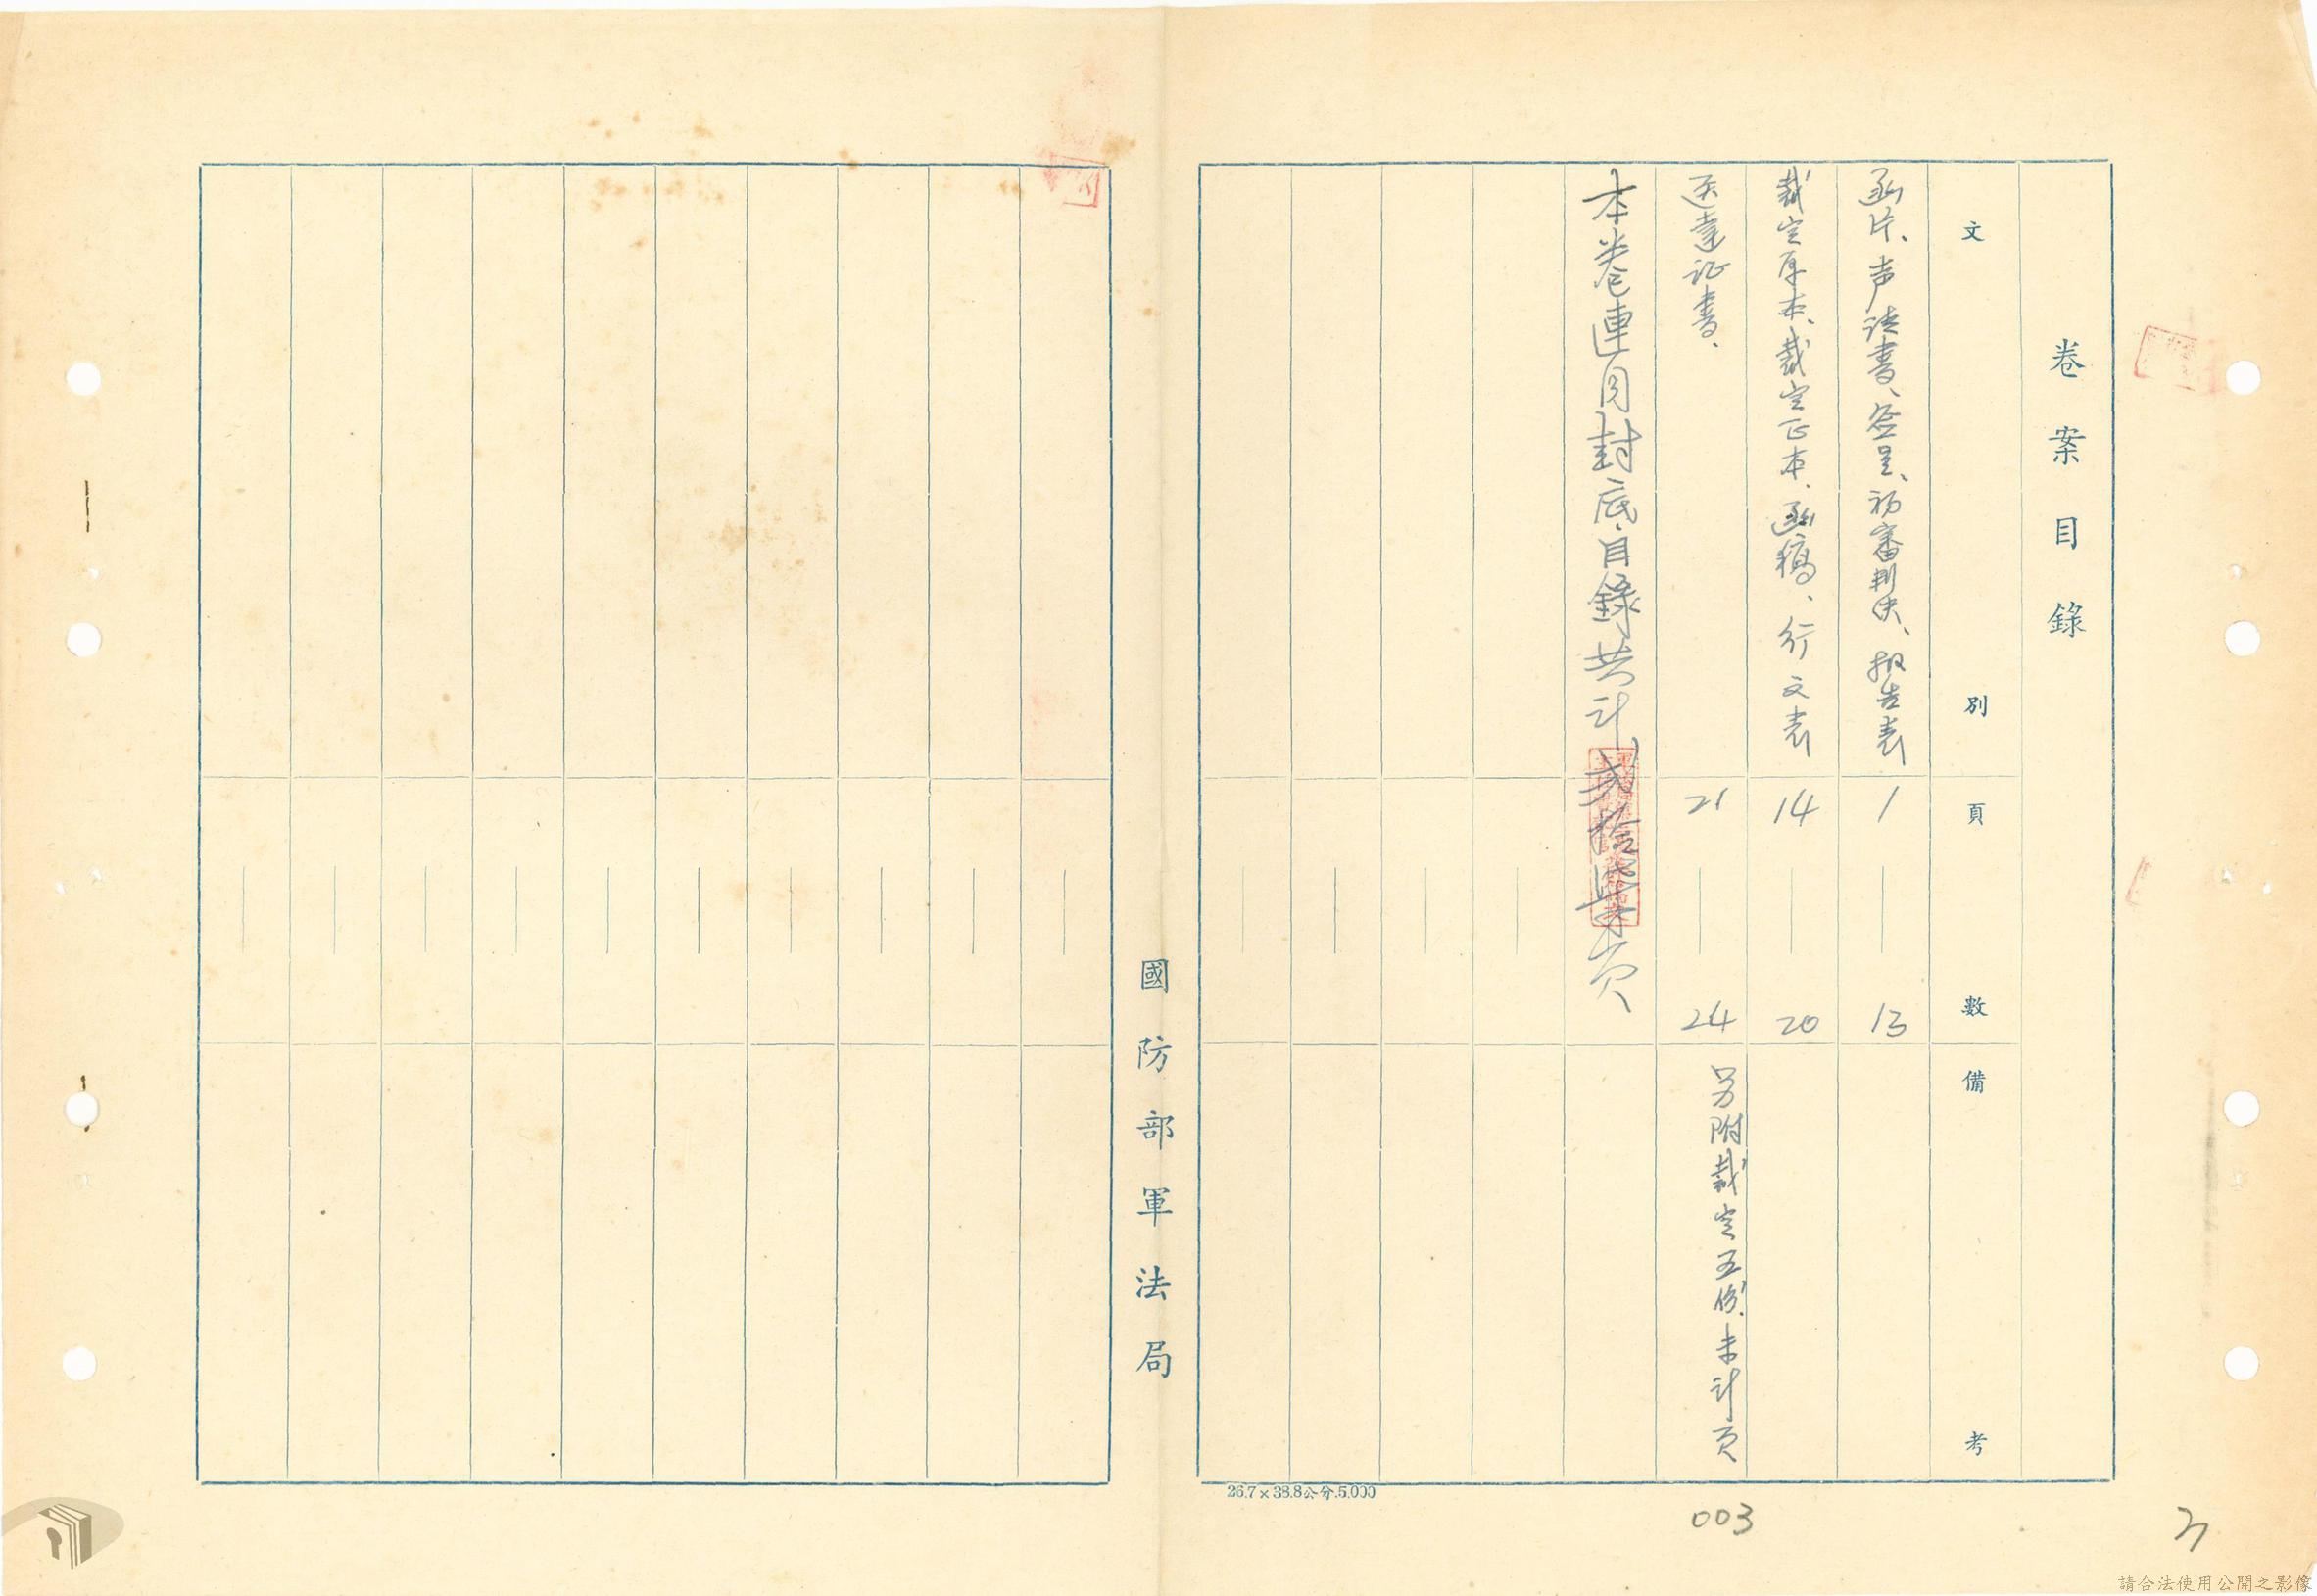 卷案目錄
文別
頁數
備考
函片、声请書、签呈、初審判决、报告表
1
13
裁定原本、裁定正本、函稿、行文表
14
20
送達证書、
21
24
另附裁定五份、未计页
本卷連同封底、目錄共计弍拾柒页
26.7×38.8公分.5,000
003
國防部軍法局
請合法使用公開之影像